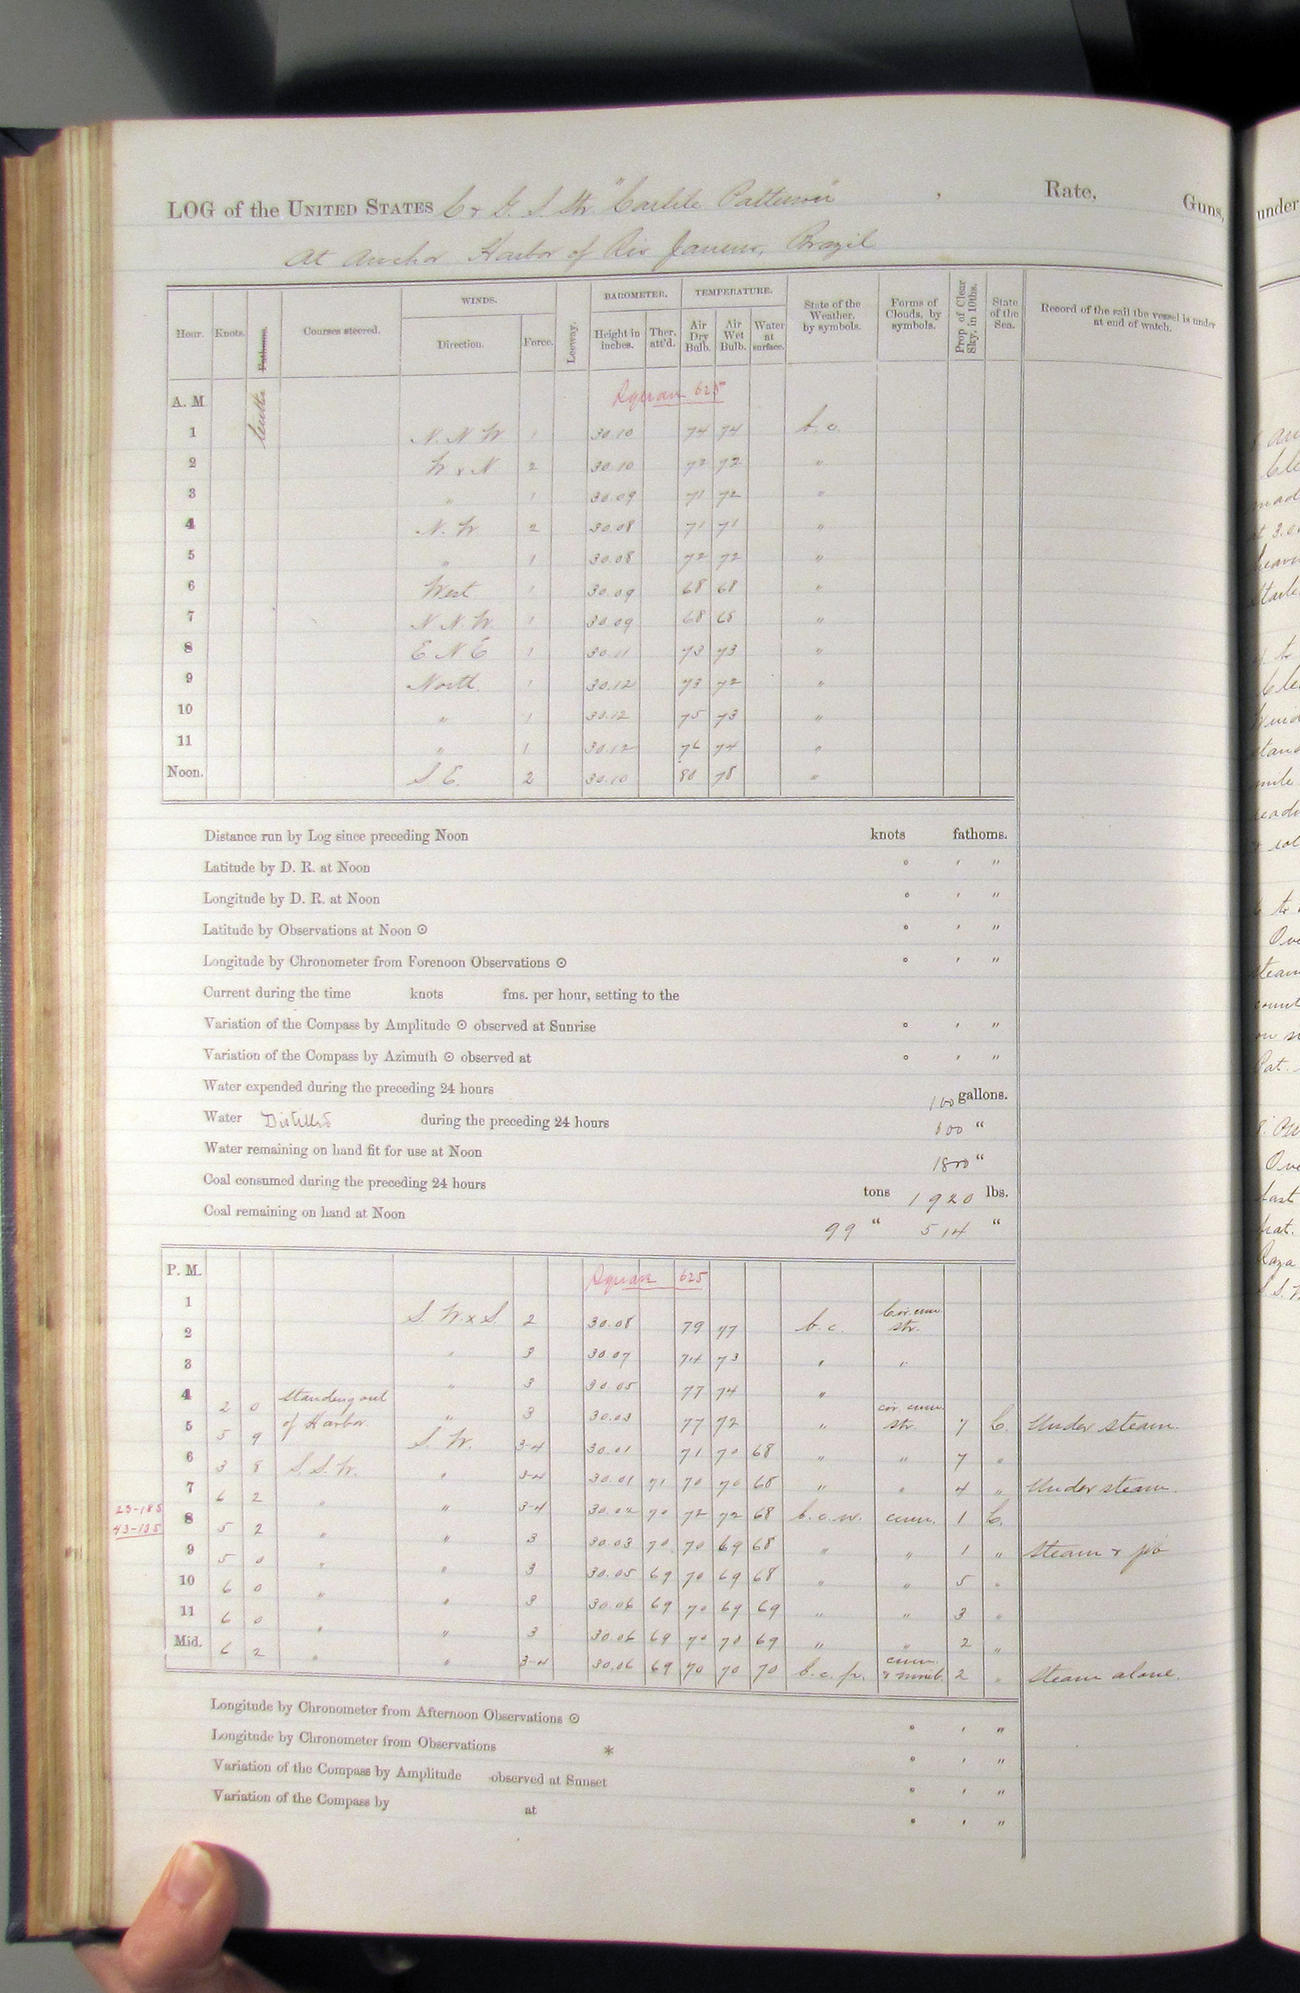 LOG of the UNITED STATES C & G. S. Str. "Carlile Patterson", Rate, Guns, under
At Anchor Harbor of Rio Janeiro, Brazil
Hour. Knots. Fathoms. Courses steered. WINDS. Direction. Force. Leeway. BAROMETER. Height in inches. Ther. att'd. TEMPERATURE. Air Dry Bulb. Air Wet Bulb. Water at surface. State of the Weather, by symbols. Forms of Clouds, by symbols. Prop. of Clear Sky, in 10ths. State of the Sea. Record of the sail the vessel is under at end of watch.
A. M. tenths Square 625
1 N. N. W 1 30.10 74 74 b. c.
2 W x N 2 30.10 72 72 "
3 " 1 30.09 71 72 "
4 N. W. 2 30.08 71 71 "
5 " 1 30.08 72 72 "
6 West 1 30.09 68 68 "
7 N. N. W. 1 30.09 68 68 "
8 E N E 1 30.11 73 73 "
9 North 1 30.12 73 72 "
10 " 1 30.12 75 73 "
11 " 1 30.12 76 74 "
Noon. S E. 2 30.10 80 78 "
Distance run by Log since preceding Noon knots fathoms.
Latitude by D. R. at Noon ° ′ ″
Longitude by D. R. at Noon ° ′ ″
Latitude by Observations at Noon ⊙ ° ′ ″
Longitude by Chronometer from Forenoon Observations ⊙ ° ′ ″
Current during the time knots fms. per hour, setting to the
Variation of the Compass by Amplitude ⊙ observed at Sunrise ° ′ ″
Variation of the Compass by Azimuth ⊙ observed at ° ′ ″
Water expended during the preceding 24 hours 100 gallons.
Water Distilled during the preceding 24 hours 600 "
Water remaining on hand fit for use at Noon 1800 "
Coal consumed during the preceding 24 hours tons 1920 lbs.
Coal remaining on hand at Noon 99 " 514 "
P. M. Square 625
1 S. W. x S. 2 30.08 79 77 b. c. Cir. cum. str.
2 " 3 30.07 74 73 " "
3 " 3 30.05 77 74 "
4 2 0 Standing out of Harbor " 3 30.03 77 72 " cir. cum. str. 7 C. Under steam.
5 5 9 S. W. 3-4 30.01 71 70 68 " " 7 "
6 3 8 S. S. W. " 3-4 30.01 71 70 70 68 " " 4 " Under steam.
7 6 2 " " 3-4 30.02 70 72 72 68 b. c. m. cum. 1 C.
23-185
43-135
8 5 2 " " 3 30.03 70 70 69 68 " " 1 " Steam & jib
9 5 0 " " 3 30.05 69 70 69 68 " " 5 "
10 6 0 " " 3 30.06 69 70 69 69 " " 3 "
11 6 0 " " 3 30.06 69 70 70 69 " " 2 "
Mid. 6 2 " " 3-4 30.06 69 70 70 70 b. c. p. cum. & nimb. 2 " Steam alone.
Longitude by Chronometer from Afternoon Observations ⊙ ° ′ ″
Longitude by Chronometer from Observations * ° ′ ″
Variation of the Compass by Amplitude observed at Sunset ° ′ ″
Variation of the Compass by at ° ′ ″